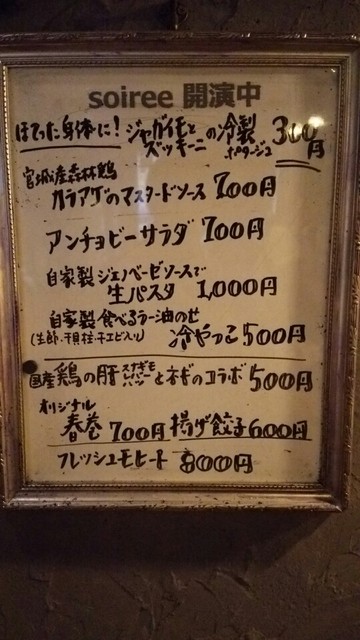 soiree 開演中
ほてった身体に! ジャガイモとズッキーニの冷製ポタージュ 300円
宮城産森林鶏
カラアゲのマスタードソース 700円
アンチョビーサラダ 700円
自家製ジェノベーゼソースで
生パスタ 1,000円
自家製食べるラー油のせ
(生節・干貝柱・干エビ入り) 冷やっこ 500円
国産鶏の肝 とネギのコラボ 500円
オリジナル
春巻 700円 揚げ餃子 600円
フレッシュモヒート 800円